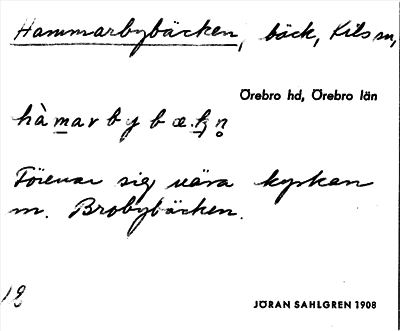 Hammarbybäcken, bäck, Kils sn,
Örebro hd, Örebro län
hàmarbybæ.kn̥
Förenar sig nära kyrkan
m. Brobybäcken.
JÖRAN SAHLGREN 1908